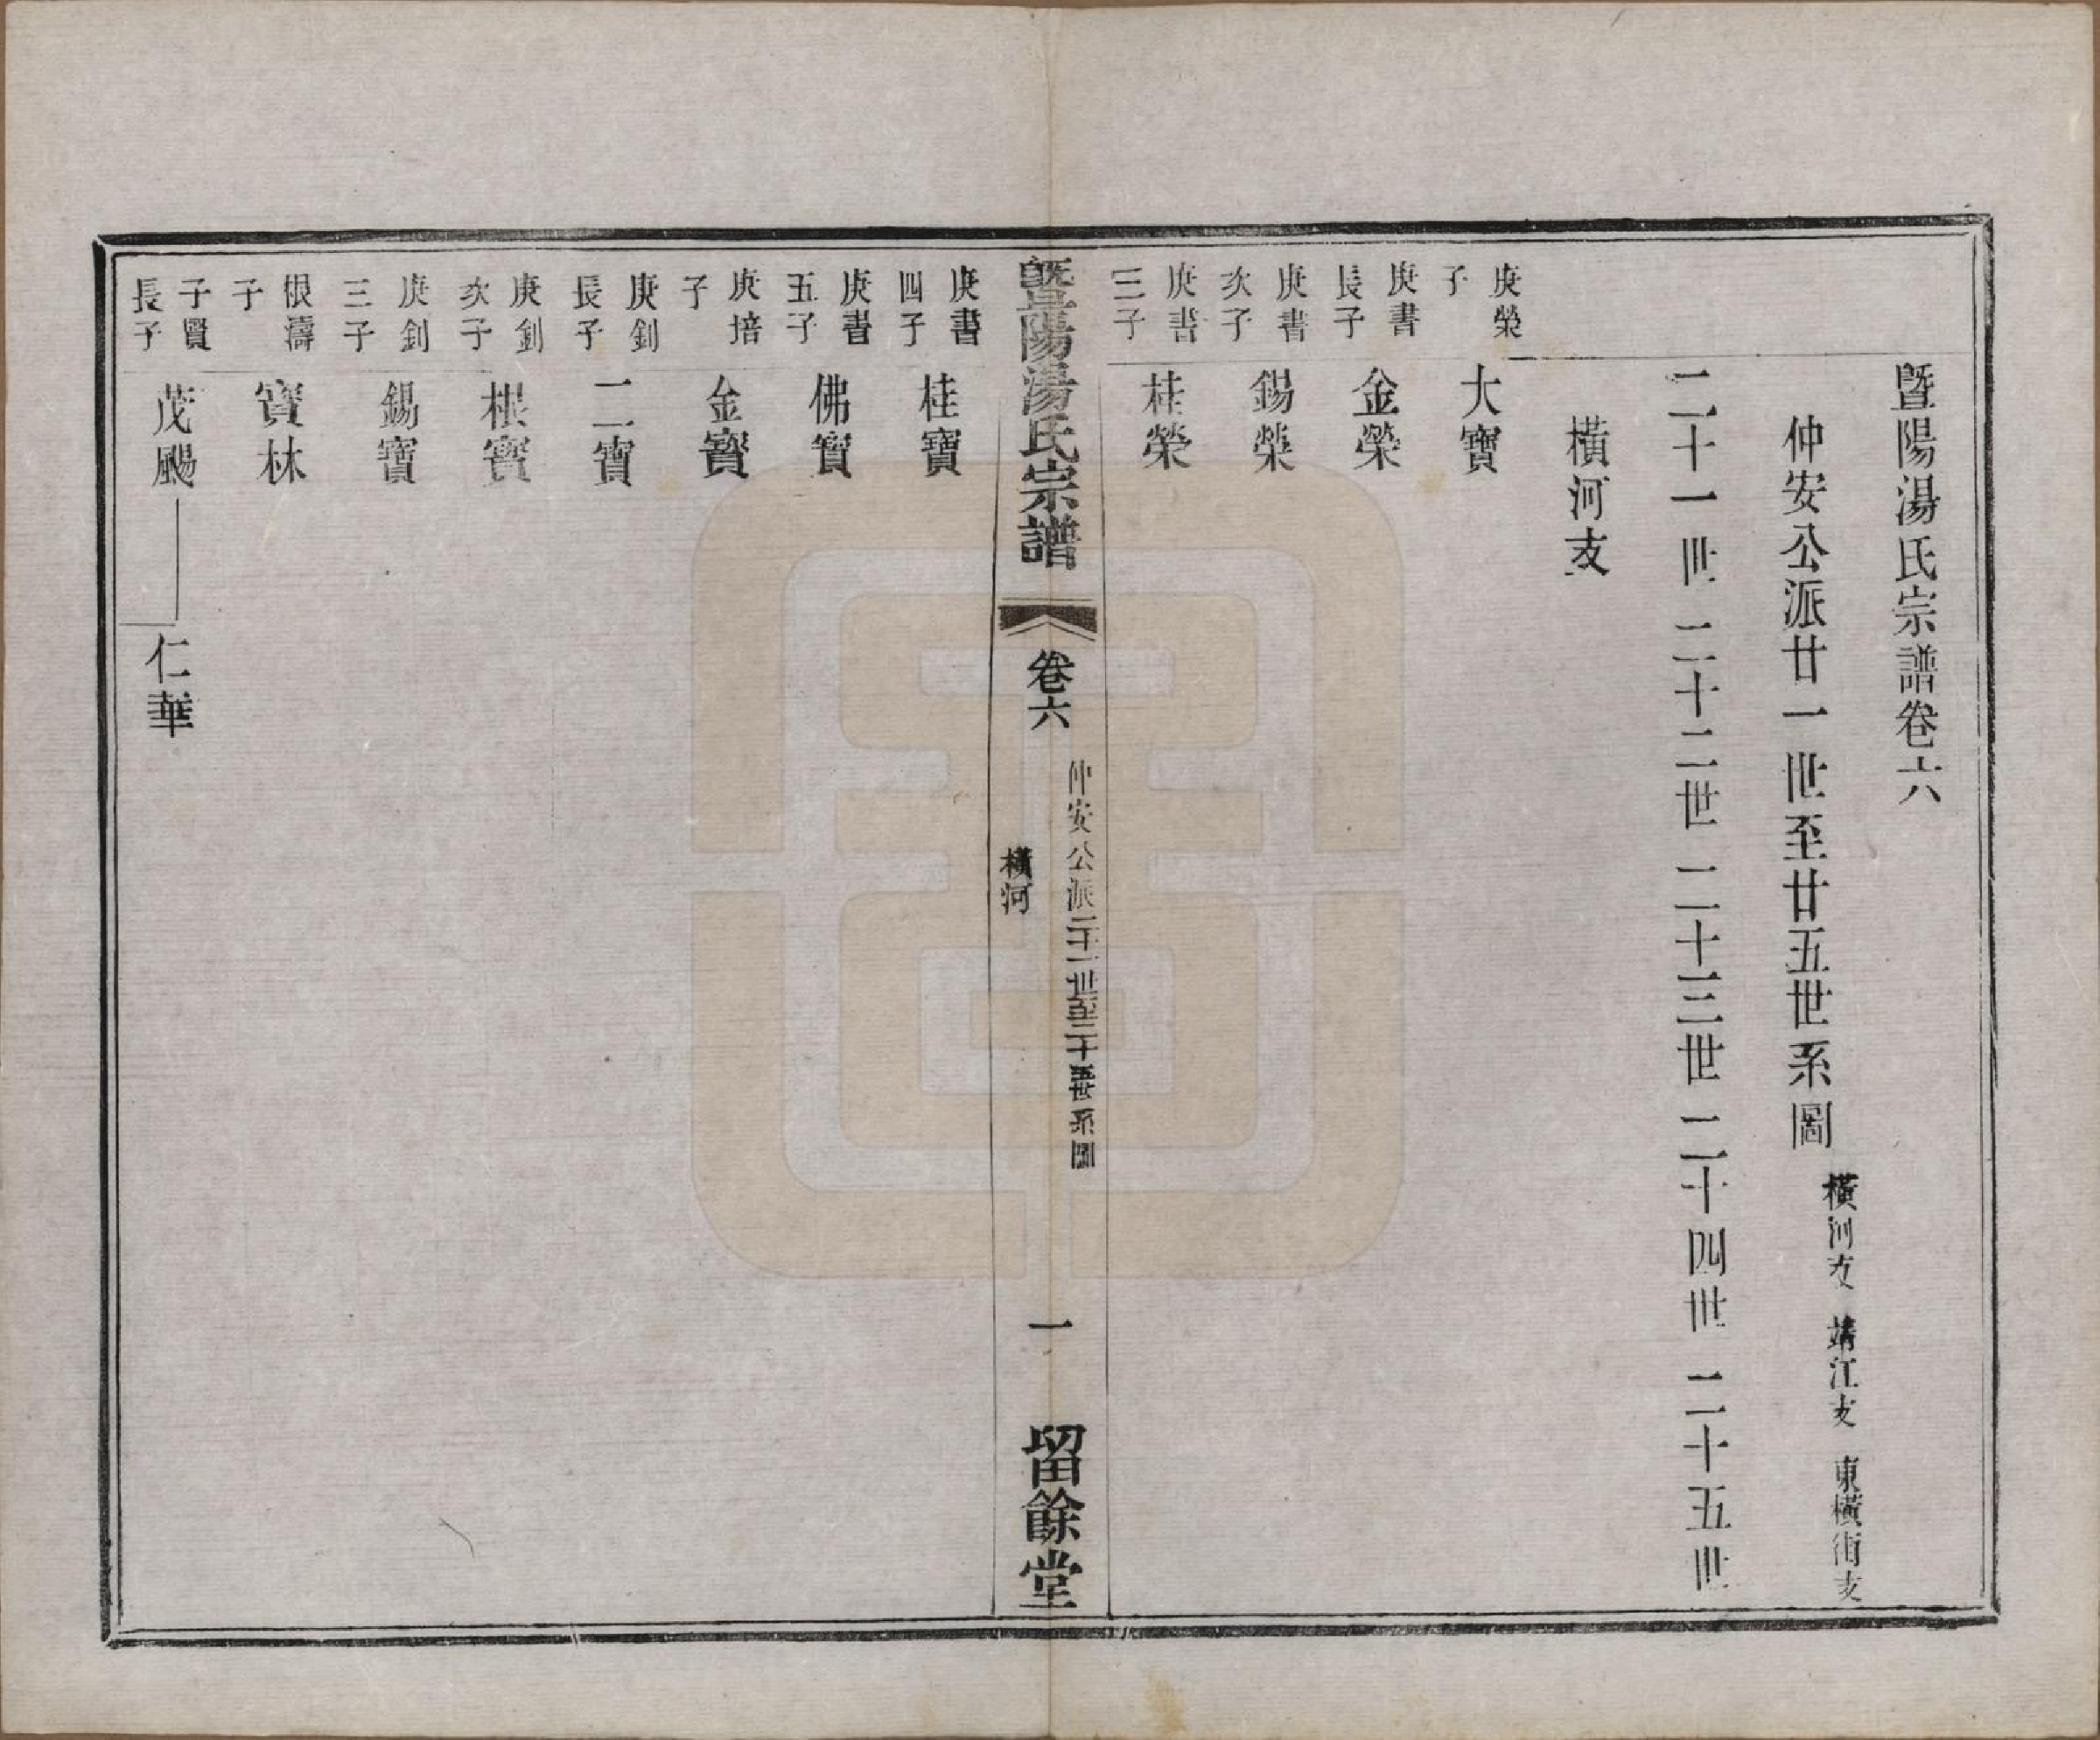 暨陽湯氏宗譜卷六
仲安公派廿一世至廿五世系圖 橫河支 靖江支 東橫街支
二十一世 二十二世 二十三世 二十四世 二十五世
橫河支
庚榮子 大寶
庚書長子 金榮
庚書次子 錫榮
庚書三子 桂榮
暨陽湯氏宗譜 卷六 仲安公派二十一世至二十五世系圖 橫河 一 留餘堂
庚書四子 桂寶
庚書五子 佛寶
庚培子 金寶
庚釗長子 二寶
庚釗次子 根寶
庚釗三子 錫寶
根濤子 寶林
子賢長子 茂颺 仁華